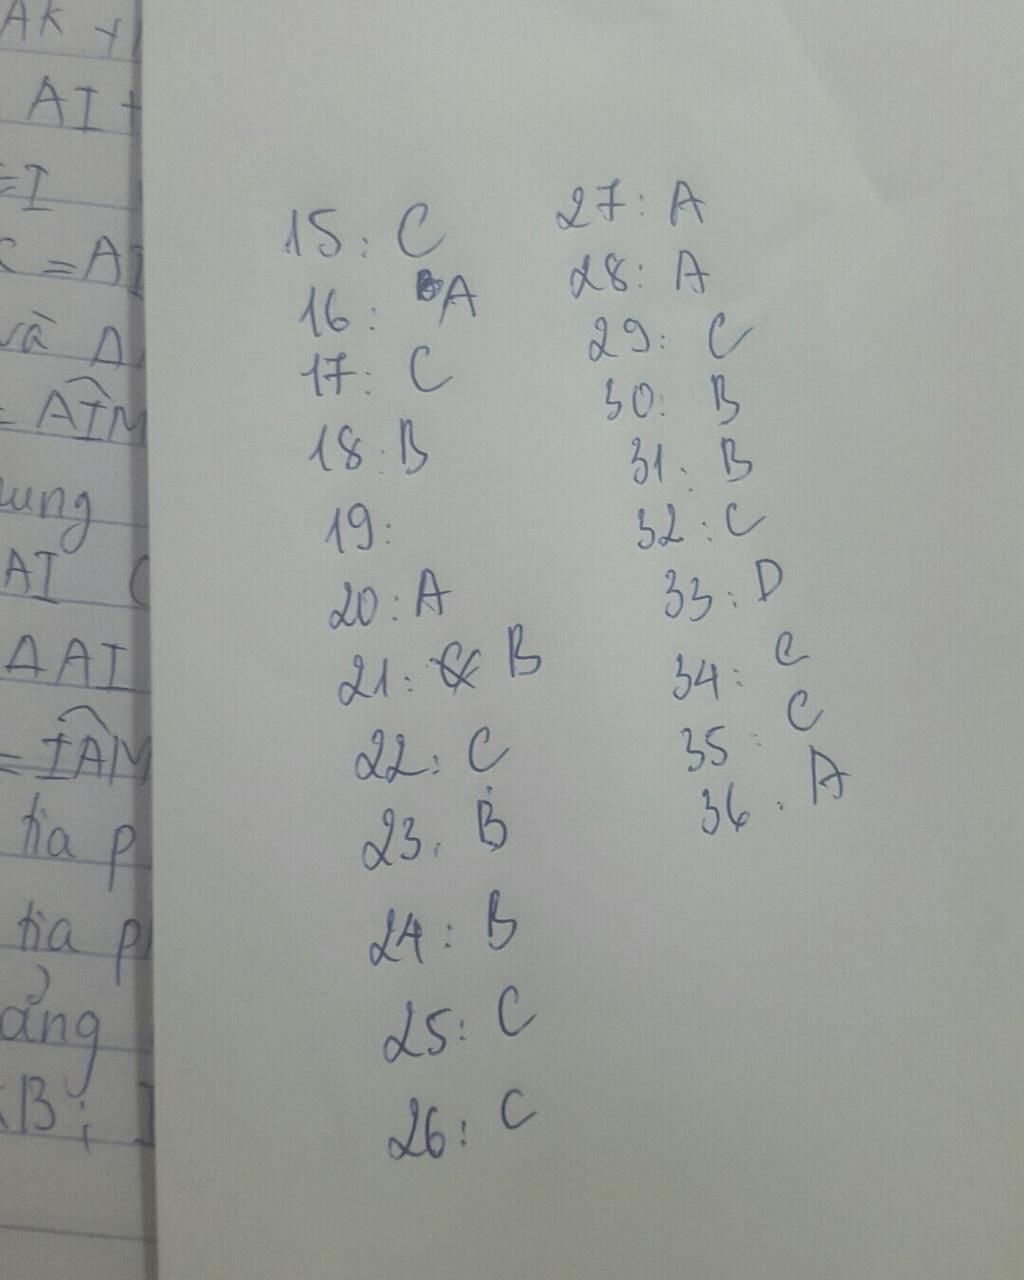 AK +
AI +
=I
C = AI
và A
= AIM
ung
AI
AAI
= IAM
tia p
tia p
ảng
B;
15: C
16: A
17: C
18: B
19:
20: A
21: B
22: C
23: B
24: B
25: C
26: C
27: A
28: A
29: C
30: B
31: B
32: C
33: D
34: C
35: C
36: A